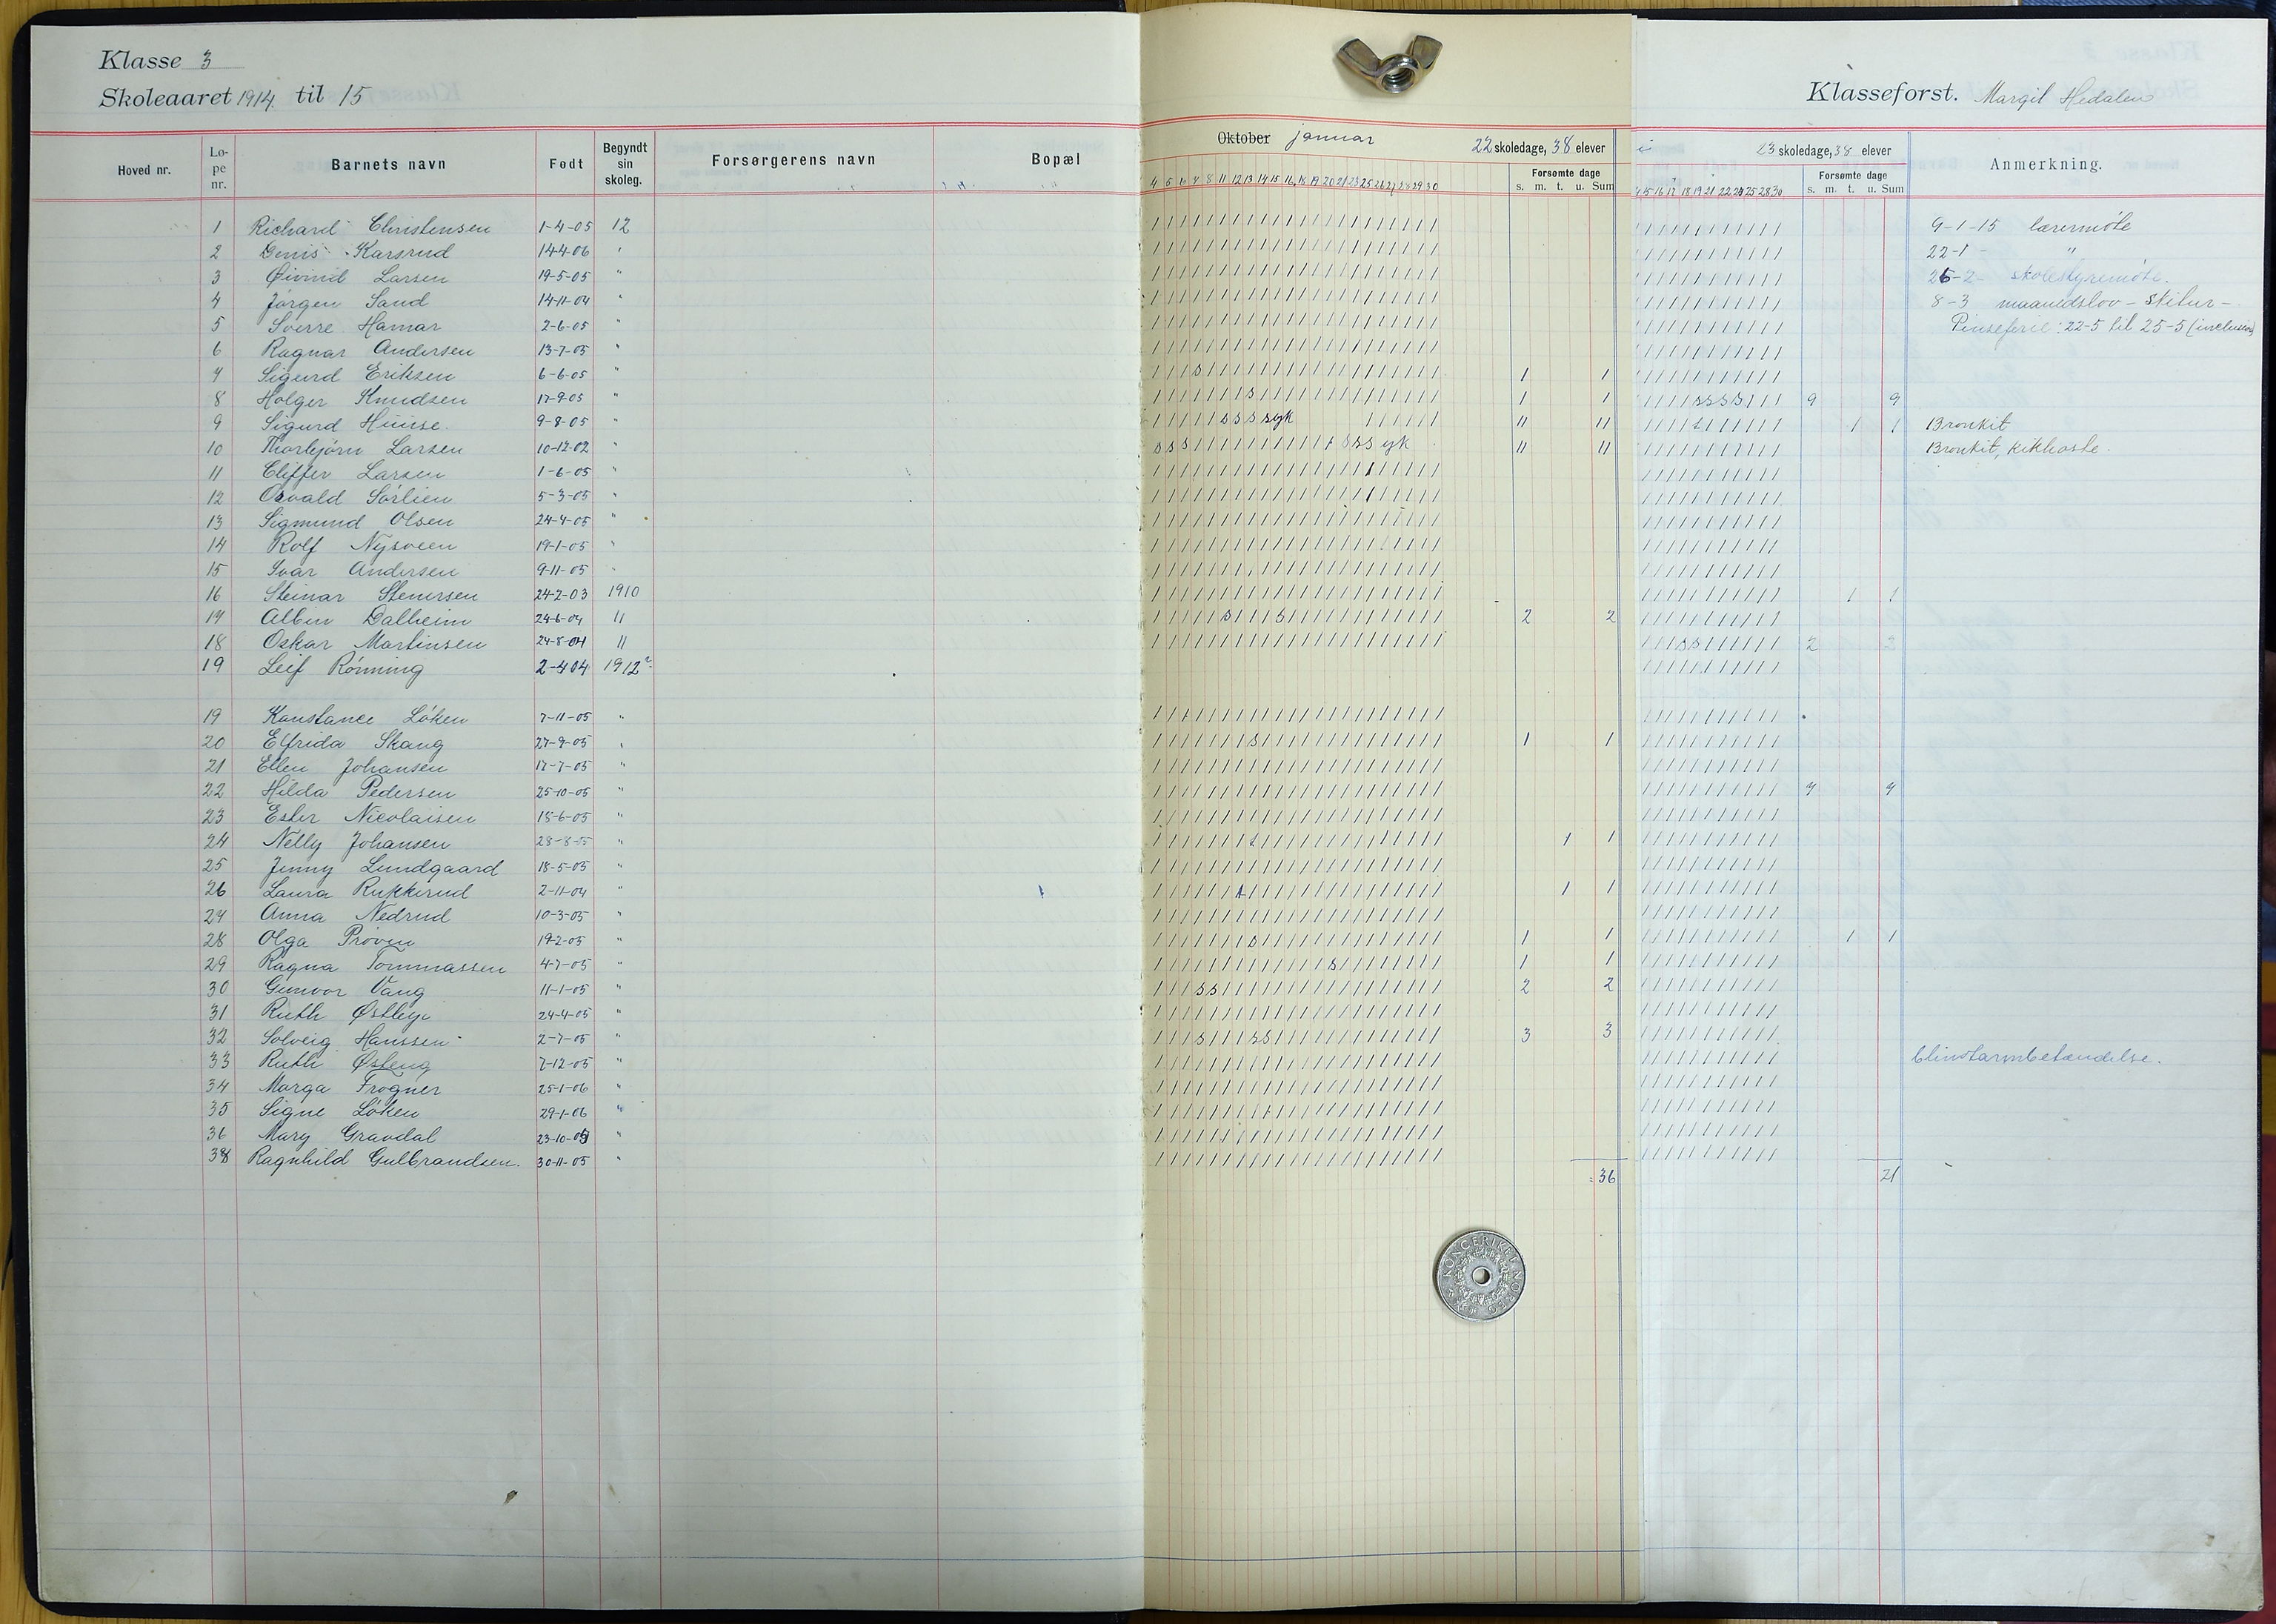 Klasse 3
Skoleaaret 1914 til 15
Klasseforst. Margit Hedalen
Hoved nr. Lø-pe nr. Barnets navn Født Begyndt sin skoleg. Forsørgerens navn Bopæl
Oktober januar 22 skoledage, 38 elever
Forsømte dage
s. m. t. u. Sum
23 skoledage, 38 elever
Forsømte dage
s. m. t. u. Sum
Anmerkning.
1 Richard Christensen 1-4-05 12 9-1-15 lærermöte
2 Karsrud 14-4-06 " 22-1 - "
3 Øivind Larsen 19-5-05 " 26-2- skolestyremöte.
4 Jörgen Sand 14-11-04 " 8-3 maanedslov - skitur -
5 Sverre Hamar 2-6-05 " Pinseferie: 22-5 til 25-5 (inclusive)
6 Ragnar Andersen 13-7-05 "
7 Sigurd Eriksen 6-6-05 " 1 1
8 Holger Knudsen 17-9-05 " 1 1 9 9
9 Sigurd 9-8-05 " sssyk 11 11 1 1 Bronkit
10 Thorbjörn Larsen 10-12-02 " sss sssyk 11 11 Bronkit, kikhoste.
11 Larsen 1-6-05 "
12 Osvald Sörlien 5-3-05 "
13 Sigmund Olsen 24-4-05 "
14 Rolf Nysveen 19-1-05 "
15 Ivar Andersen 9-11-05 "
16 Steinar Stenersen 24-2-03 1910 1 1
17 Albin Dalheim 24-6-04 11 2 2
18 Oskar Martinsen 24-8-04 11 2 2
19 Leif Rönning 2-4-04 1912
19 Konstance Löken 7-11-05 "
20 Elfrida Skaug 27-9-05 " 1 1
21 Ellen Johansen 17-7-05 "
22 Hilda Pedersen 25-10-05 " 7 7
23 Ester Nicolaisen 15-6-05 "
24 Nelly Johansen 28-8-05 " 1 1
25 Jenny Lundgaard 18-5-05 "
26 Laura Rukkerud 2-11-04 " 1 1
27 Anna Nedrud 10-3-05 "
28 Olga Pröven 19-2-05 " 1 1 1 1
29 Ragna Tommassen 4-7-05 " 1 1
30 Gunvor Vang 11-1-05 " 2 2
31 Ruth Østbye 24-4-05 "
32 Solveig Hanssen 2-7-05 " 3 3
33 Ruth Østeng 7-12-05 " blindtarmbetændelse.
34 Marga Frogner 25-1-06 "
35 Signe Löken 29-1-06 "
36 Mary Gravdal 23-10-05 "
38 Ragnhild Gulbrandsen. 30-11-05 "
36
21
KONGERIKET NORGE